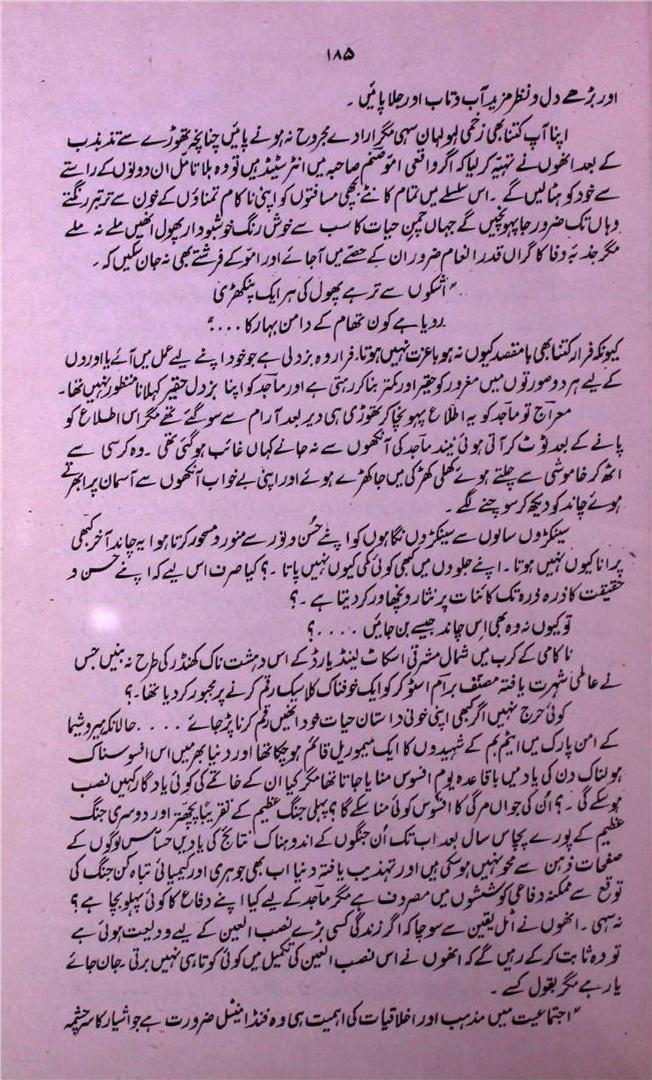 ۱۸۵
اور بڑھے دل و نظر مزید آب و تاب اور جلا پائیں ۔
اپنا آپ کتنا بھی زخمی لہولہان سہی مگر ارادے مجروح نہ ہونے پائیں چنانچہ تھوڑے سے تذبذب
کے بعد انھوں نے تہیّہ کر لیا کہ اگر واقعی امو صنم صاحبہ میں انٹرسٹیڈ ہیں تو وہ بلا تامل ان دونوں کے راستے
سے خود کو ہٹا لیں گے ۔ اس سلسلے میں تمام کانٹے بھی مسافتوں کو اپنی ناکام تمناؤں کے خون سے تربتر رنگتے
وہاں تک ضرور جا پہونچیں گے جہاں چمنِ حیات کا سب سے خوش رنگ خوشبودار پھول انھیں ملے نہ ملے
مگر جذبۂ وفا کا گراں قدر انعام ضرور ان کے حصّے میں آجائے اور امو کے فرشتے بھی نہ جان سکیں کہ ۔
"اشکوں سے تر ہے پھول کی ہر ایک پنکھڑی
رویا ہے کون تھام کے دامن بہار کا . . . ."
کیونکہ فرار کتنا بھی بامقصد کیوں نہ ہو باعزت نہیں ہوتا۔ فرار وہ بزدلی ہے جو خود اپنے لیے عمل میں آئے یا اوروں
کے لیے ہر دو صورتوں میں مغرور کو حقیر اور کمتر بنا کر رہتی ہے اور ماجد کو اپنا بزدل حقیر کہلانا منظور نہیں تھا۔
معراج تو ماجد کو یہ اطلاع پہونچا کر تھوڑی ہی دیر بعد آرام سے سو گئے تھے مگر اس اطلاع کو
پانے کے بعد ٹوٹ کر آتی ہوئی نیند ماجد کی آنکھوں سے نہ جانے کہاں غائب ہو گئی تھی ۔ وہ کرسی سے
اٹھ کر خاموشی سے چلتے ہوئے کھلی کھڑکی میں جا کھڑے ہوئے اور اپنی بے خواب آنکھوں سے آسمان پر ابھرتے
ہوئے چاند کو دیکھ کر سوچنے لگے ۔
سینکڑوں سالوں سے سینکڑوں نگاہوں کو اپنے حُسن و نور سے منور و مسحور کرتا ہوا یہ چاند آخر کبھی
پرانا کیوں نہیں ہوتا ۔ اپنے جلووں میں کبھی کوئی کمی کیوں نہیں پاتا ۔ ؟ کیا صرف اس لیے کہ اپنے حسن و
حقیقت کا ذرہ ذرہ تک کائنات پر نثار و نچھاور کر دیتا ہے ۔ ؟
تو کیوں نہ وہ بھی اس چاند جیسے بن جائیں . . . . ؟
ناکامی کے کرب میں شمال مشرقی اسکاٹ لینڈ یارڈ کے اس دہشت ناک کھنڈر کی طرح نہ بنیں جس
نے عالمی شہرت یافتہ مصنف برام اسٹوکر کو ایک خوفناک کلاسیک رقم کرنے پر مجبور کر دیا تھا۔ ؟
کوئی حرج نہیں اگر کبھی اپنی خونی داستان حیات خود انھیں رقم کرنا پڑ جائے . . . . حالانکہ ہیروشیما
کے امن پارک میں ایٹم بم کے شہیدوں کا ایک میموریل قائم ہو چکا تھا اور دنیا بھر میں اس افسوسناک
ہولناک دن کی یاد میں باقاعدہ یوم افسوس منایا جاتا تھا مگر کیا ان کے خاتمے کی کوئی یادگار کہیں نصب
ہو سکے گی ۔ ؟ اُن کی جواں مرگی کا افسوس کوئی منا سکے گا ؟ پہلی جنگ عظیم کے تقریباً پچھتر اور دوسری جنگ
عظیم کے پورے پچاس سال بعد اب تک اُن جنگوں کے اندوہناک نتائج کی یادیں حساس لوگوں کے
صفحات ذہن سے محو نہیں ہو سکی ہیں اور تہذیب یافتہ دنیا اب بھی جوہری اور کیمیائی تباہ کن جنگ کی
توقع سے ممکنہ دفاعی کوششوں میں مصروف ہے مگر ماجد کے لیے کیا اپنے دفاع کا کوئی پہلو بچا ہے ؟
نہ سہی ۔ انھوں نے اٹل یقین سے سوچا کہ اگر زندگی کسی بڑے نصب العین کے لیے ودیعت ہوئی ہے
تو وہ ثابت کر کے رہیں گے کہ انھوں نے اس نصب العین کی تکمیل میں کوئی کوتاہی نہیں برتی ۔ جان جائے
یا رہے مگر بقول کسے ۔
"اجتماعیت میں مذہب اور اخلاقیات کی اہمیت ہی وہ فنڈامینٹل ضرورت ہے جو ایثار کا سرچشمہ